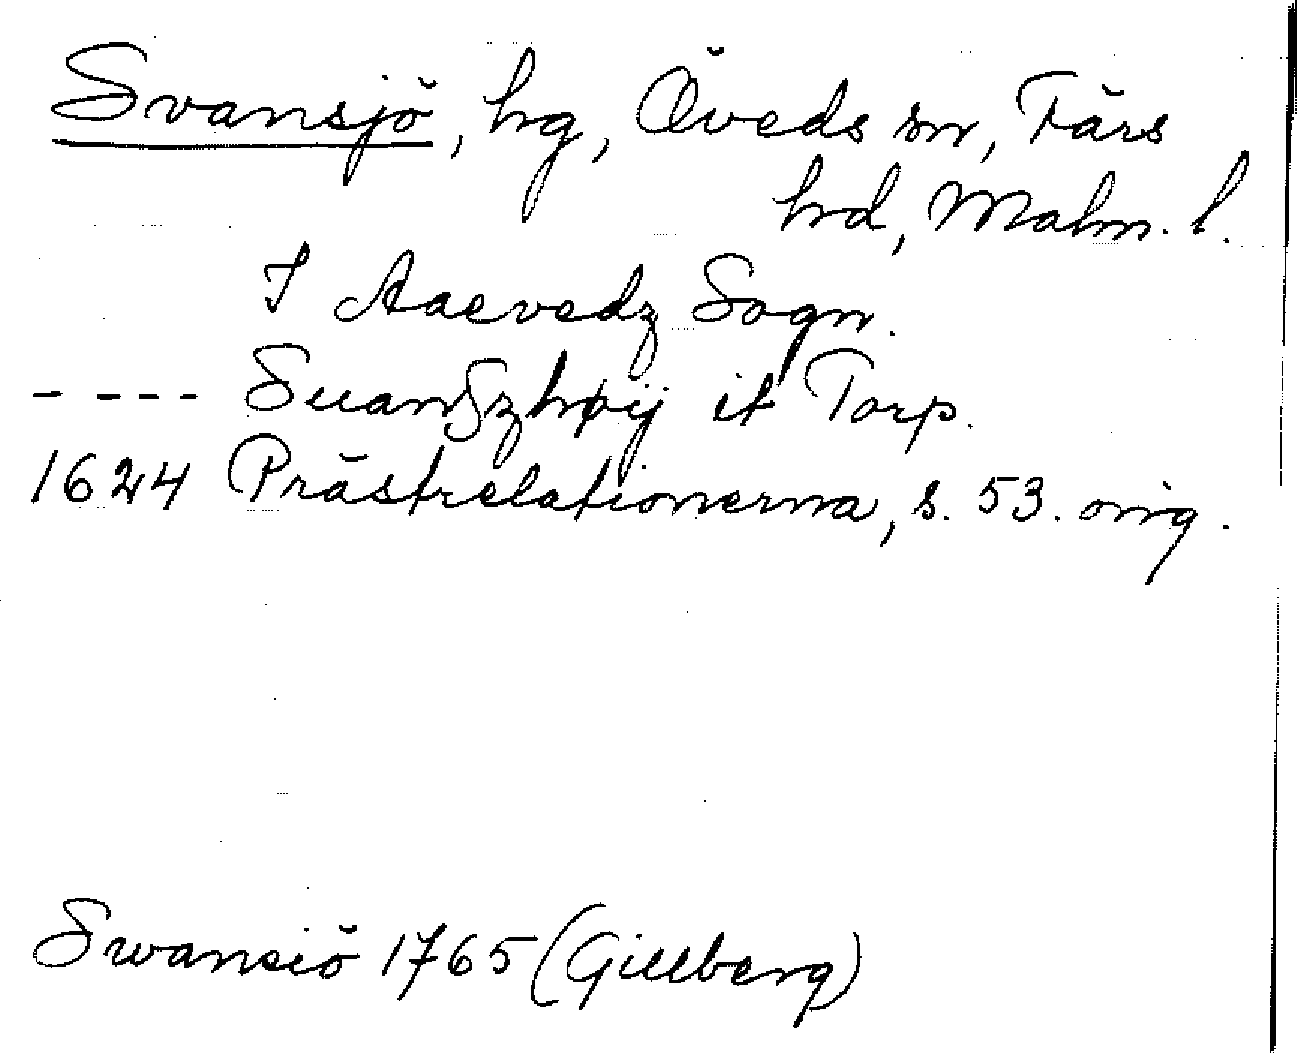 Svansjö, hg, Öveds sn, Färs
hd, Malm. l.
I Aaevedz Sogn.
- --- Suanßzhøij it Torp.
1624 Prästrelationerna, s. 53. orig.
Swansiö 1765 (Gillberg)